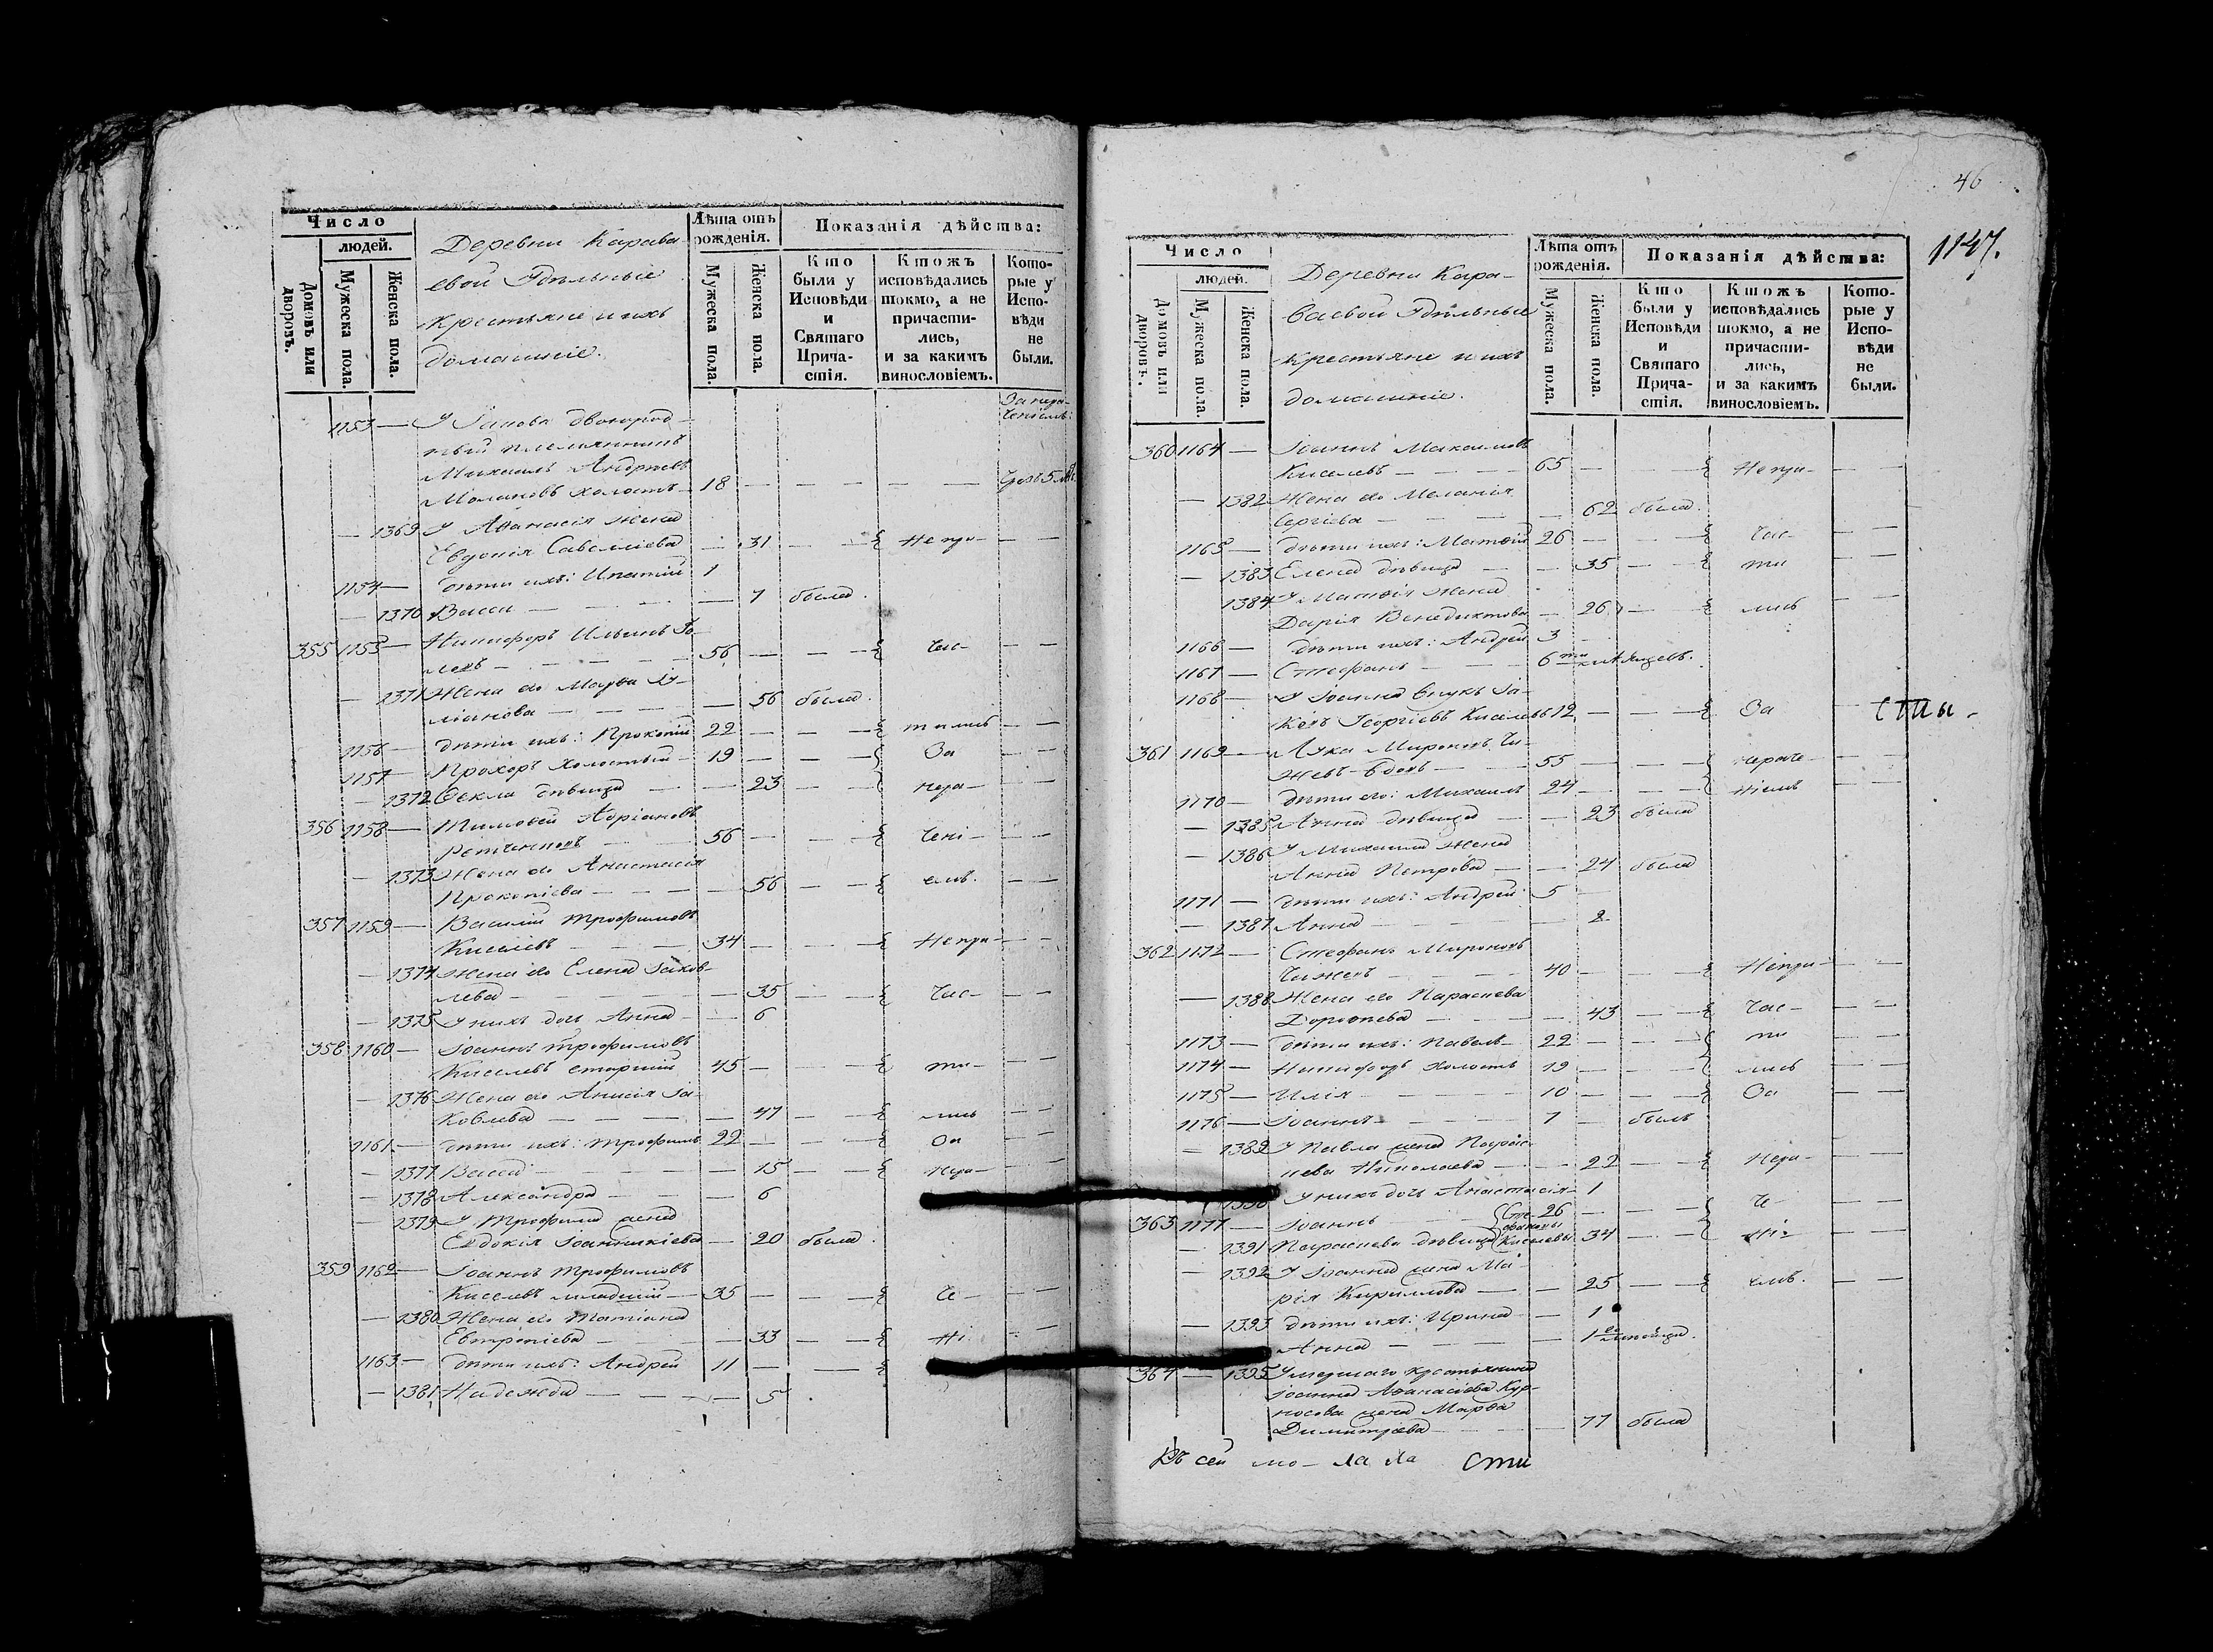 Число
людей.
Домовъ или дворовъ.
Мужеска пола.
Женска пола.
Деревни Карава-
евой Удѣльные
крестьяне и ихъ
домашніе.
Лѣта отъ рожденія.
Мужеска пола.
Женска пола.
Показанія дѣйства:
Кто были у Исповѣди и Святаго Причастія.
Ктожъ исповѣдались токмо, а не причастились, и за какимъ винословіемъ.
Которые у Исповѣди не были.
1153 — У двоюрод-
ный племянникъ
Михаилъ Андреевъ
холостъ — 18 — — — — —
— 1369 У Аѳанасія жена
Евдокія Савеліева — 31 — — Непри- — —
1154 — дѣти ихъ: Ипатій 1
— 1370 Васса — — 7 была.
355 1155 — Никифоръ Ильинъ
— 56 — — час- — —
— 1371 Жена его Марѳа
— 56 была.
1156 — дѣти ихъ: Прокопій 22 — — тились — —
1157 — Прохоръ холостый — 19 — — За — —
— 1372 Ѳекла дѣвица — — 23 — нера- — —
356 1158 — Тимоѳей Адріановъ
— 56 — — чені- — —
— 1373 Жена его Анастасія
Прокопіева — — 56 — — емъ. — —
357 1159 — Василій Трофимовъ
Киселевъ — 34 — — Непри- — —
— 1374 Жена его Елена Іаков-
лева — — 35 — — час- — —
— 1375 У нихъ дочь Анна — — 6
358 1160 — Іоаннъ Трофимовъ
Киселевъ старшій 45 — — ти- — —
— 1376 Жена его Анисія Іа-
ковлева — — 47 — — лись — —
1161 — дѣти ихъ: Трофимъ 22 — — За — —
— 1377 Васса — — 15 — — нера- — —
— 1378 Александра — — 6
— 1379 У Трофима жена
Евдокія Іоанникіева — 20 была.
359 1162 — Іоаннъ Трофимовъ
Киселевъ младшій — 35 — — че- — —
— 1380 Жена его Татіана
Евтропіева — — 33 — — ні- — —
1163 — дѣти ихъ: Андрей 11 — —
— 1381 Надежда — — 5
46
1147.
Число
людей.
Домовъ или дворовъ.
Мужеска пола.
Женска пола.
Деревни Кара-
ваевой Удѣльные
крестьяне и ихъ
домашніе.
Лѣта отъ рожденія.
Мужеска пола.
Женска пола.
Показанія дѣйства:
Кто были у Исповѣди и Святаго Причастія.
Ктожъ исповѣдались токмо, а не причастились, и за какимъ винословіемъ.
Которые у Исповѣди не были.
360 1164 — Іоаннъ Максимовъ
Киселевъ — 65 — — Непри- — —
— 1382 Жена его Меланія
Сергіева — — 62 была.
1165 — дѣти ихъ: Матѳій 26 — — час- — —
— 1383 Елена дѣвица — — 35 — — ти — —
1384 У Матѳія жена
Дарія Венедиктова — 26 — — лись — —
1166 — дѣти ихъ: Андрей 3
1167 — Стефанъ — 6ти мѣсяцевъ.
1168 — У Іоанна внукъ Іа-
ковъ Георгіевъ Киселевъ 12 — — За —
сты.
361 1169 — Лука Мироновъ Чи-
жевъ вдовъ — 55 — — нераче- — —
1170 — дѣти его: Михаилъ 24 — — ніемъ — —
— 1385 Анна дѣвица — — 23 была
— 1386 У Михаила жена
Анна Петрова — — 24 была
1171 — дѣти ихъ: Андрей 5 —
— 1387 Анна — — 2
362 1172 — Стефанъ Мироновъ
Чижевъ — 40 — — Непри- — —
— 1388 Жена его Параскева
Дороѳеева — — 43 — — час- — —
1173 — дѣти ихъ: Павелъ 22 — — ти — —
1174 — Никифоръ холостъ 19 — — лись — —
1175 — Илія — 10 — — За — —
1176 — Іоаннъ — 7 — былъ
— 1389 У Павла жена Парас-
кева Николаева — — 22 — — нера- — —
1390 У нихъ дочь Анастасія — 1
363 1177 — Іоаннъ Сте- 26 — — че- — —
— 1391 Параскева дѣвица фановы Киселевы 34 — — ні- — —
— 1392 У Іоанна жена Ма-
рія Кириллова — — 25 — — емъ. — —
— 1393 дѣти ихъ: Ирина — 1
Анна — — 1го мѣсяца.
364 — 1395 Умершаго крестьянина
Іоанна Аѳанасіева Кур-
носова жена Марѳа
Димитріева — — 77 была
Въ сей сти